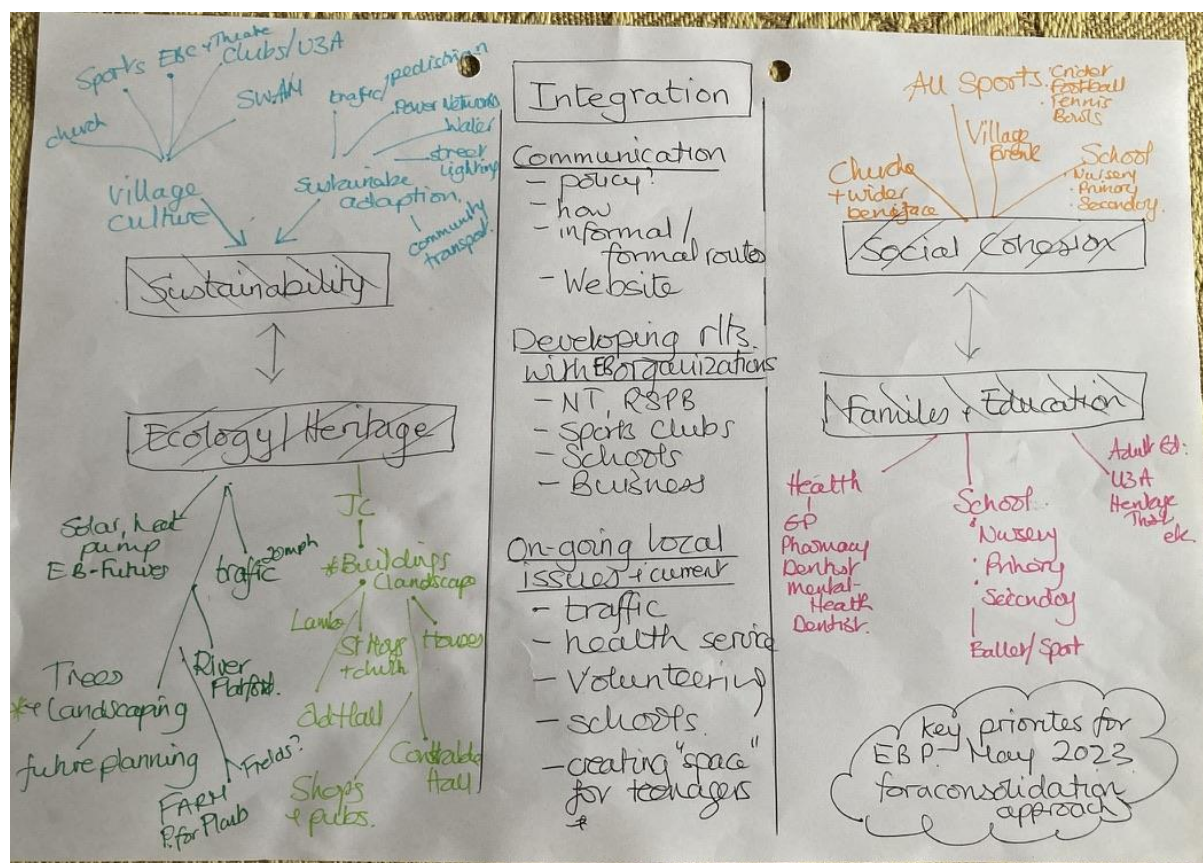 Sports
EBC + Theatre
Clubs/U3A
SWAM
church
Village
Culture
traffic/pedistrian
Power Networks
Water
street
lighting
Sustainable
adaption
community
transport.
Sustainability
Ecology/Heritage
Solar, heat
pump
EB-Futures
traffic 20mph
Trees
*+ Landscaping
future planning
River
Fields?
FARM
P. for
Jc
*Buildings
Landscape
Lamb
St Marys
+ church
Houses
Old Hall
Constable
Hall
Shops
+ pubs.
Integration
Communication
- policy?
- how
- informal/
formal routes
- Website
Developing rlts.
with EB organizations
- NT, RSPB
- Sports Clubs
- Schools
- Business
On-going local
issues + current
- traffic
- health service
- Volunteering
- schools.
- creating "space"
for teenagers
+
All Sports.
Cricket
Football
Tennis
Bowls
Village
Church
+ wider
School
Nursery
Primary
Secondary.
Social Cohesion
Families + Education
Health
GP
Pharmacy
Dentist
Mental-
Health
Dentist.
School
Nursery
Primary
Secondary
Ballet/Sport
Adult Ed:
U3A
Heritage
key priorites for
EBP- May 2023
for a consolidation
approach